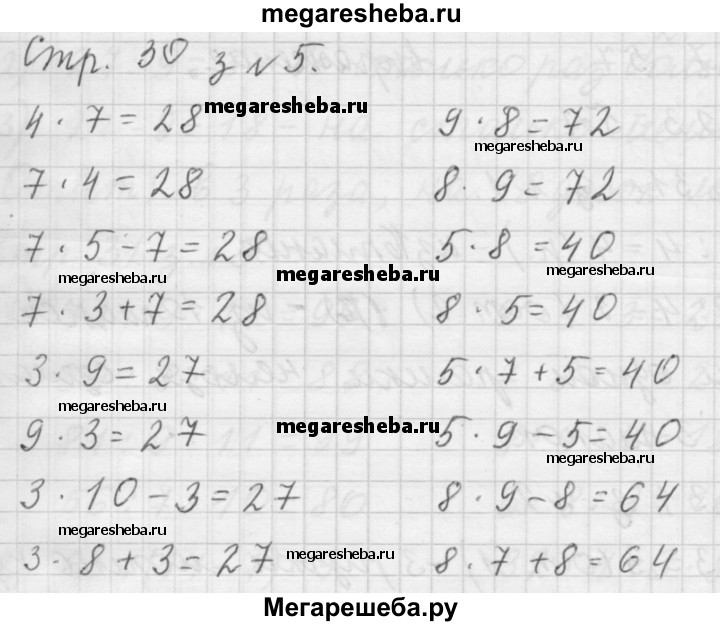 megaresheba.ru
Стр. 30 з N 5.
megaresheba.ru
4 · 7 = 28
7 · 4 = 28
7 · 5 - 7 = 28
megaresheba.ru
megaresheba.ru
7 · 3 + 7 = 28
3 · 9 = 27
megaresheba.ru
9 · 3 = 27
megaresheba.ru
3 · 10 - 3 = 27
megaresheba.ru
3 · 8 + 3 = 27
megaresheba.ru
9 · 8 = 72
megaresheba.ru
8 · 9 = 72
5 · 8 = 40
megaresheba.ru
8 · 5 = 40
5 · 7 + 5 = 40
5 · 9 - 5 = 40
megaresheba.ru
8 · 9 - 8 = 64
8 · 7 + 8 = 64
Мегарешеба.ру